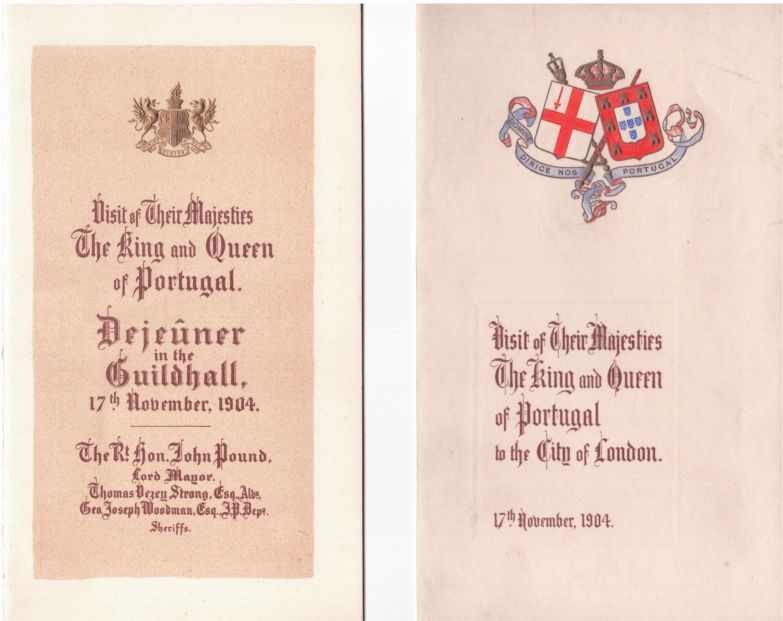 Visit of Their Majesties
The King and Queen
of Portugal.
Dejeûner
in the
Guildhall,
17th November, 1904.
The Rt. Hon. John Pound,
Lord Mayor.
Thomas Vezey Strong, Esq., Aldn.
Geo. Joseph Woodman, Esq., J.P. Depy.
Sheriffs.
DOMINE DIRIGE NOS PORTUGAL
Visit of Their Majesties
The King and Queen
of Portugal
to the City of London.
17th November, 1904.